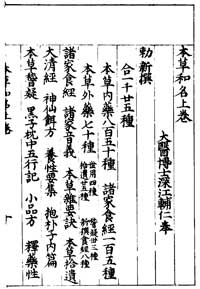 本草和名上卷
大醫博士深江輔仁奉
勅新撰
合一千廿五種
本草內藥八百五十種 諸家食經一百五種
本草外藥七十種
諸家食經 諸家音義 本草雜要訣 本草拾遺
大清經 神仙餌方 養性要集 抱朴子內篇
本草 黑子枕中五行記 小品方 釋藥性